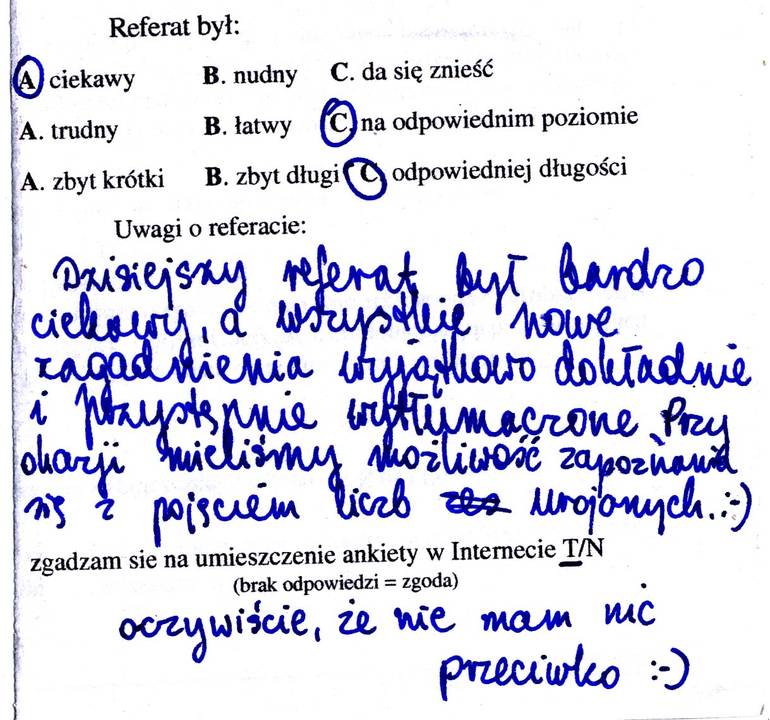 Referat był:
A ciekawy B. nudny C. da się znieść
A. trudny B. łatwy C. na odpowiednim poziomie
A. zbyt krótki B. zbyt długi C. odpowiedniej długości
Uwagi o referacie:
Dzisiejszy referat był bardzo
ciekawy, a wszystkie nowe
zagadnienia wyjątkowo dokładnie
i przystępnie wytłumaczone. Przy
okazji mieliśmy możliwość zapoznania
się z pojęciem liczb urojonych. :-)
zgadzam sie na umieszczenie ankiety w Internecie T/N
(brak odpowiedzi = zgoda)
oczywiście, że nie mam nic
przeciwko :-)